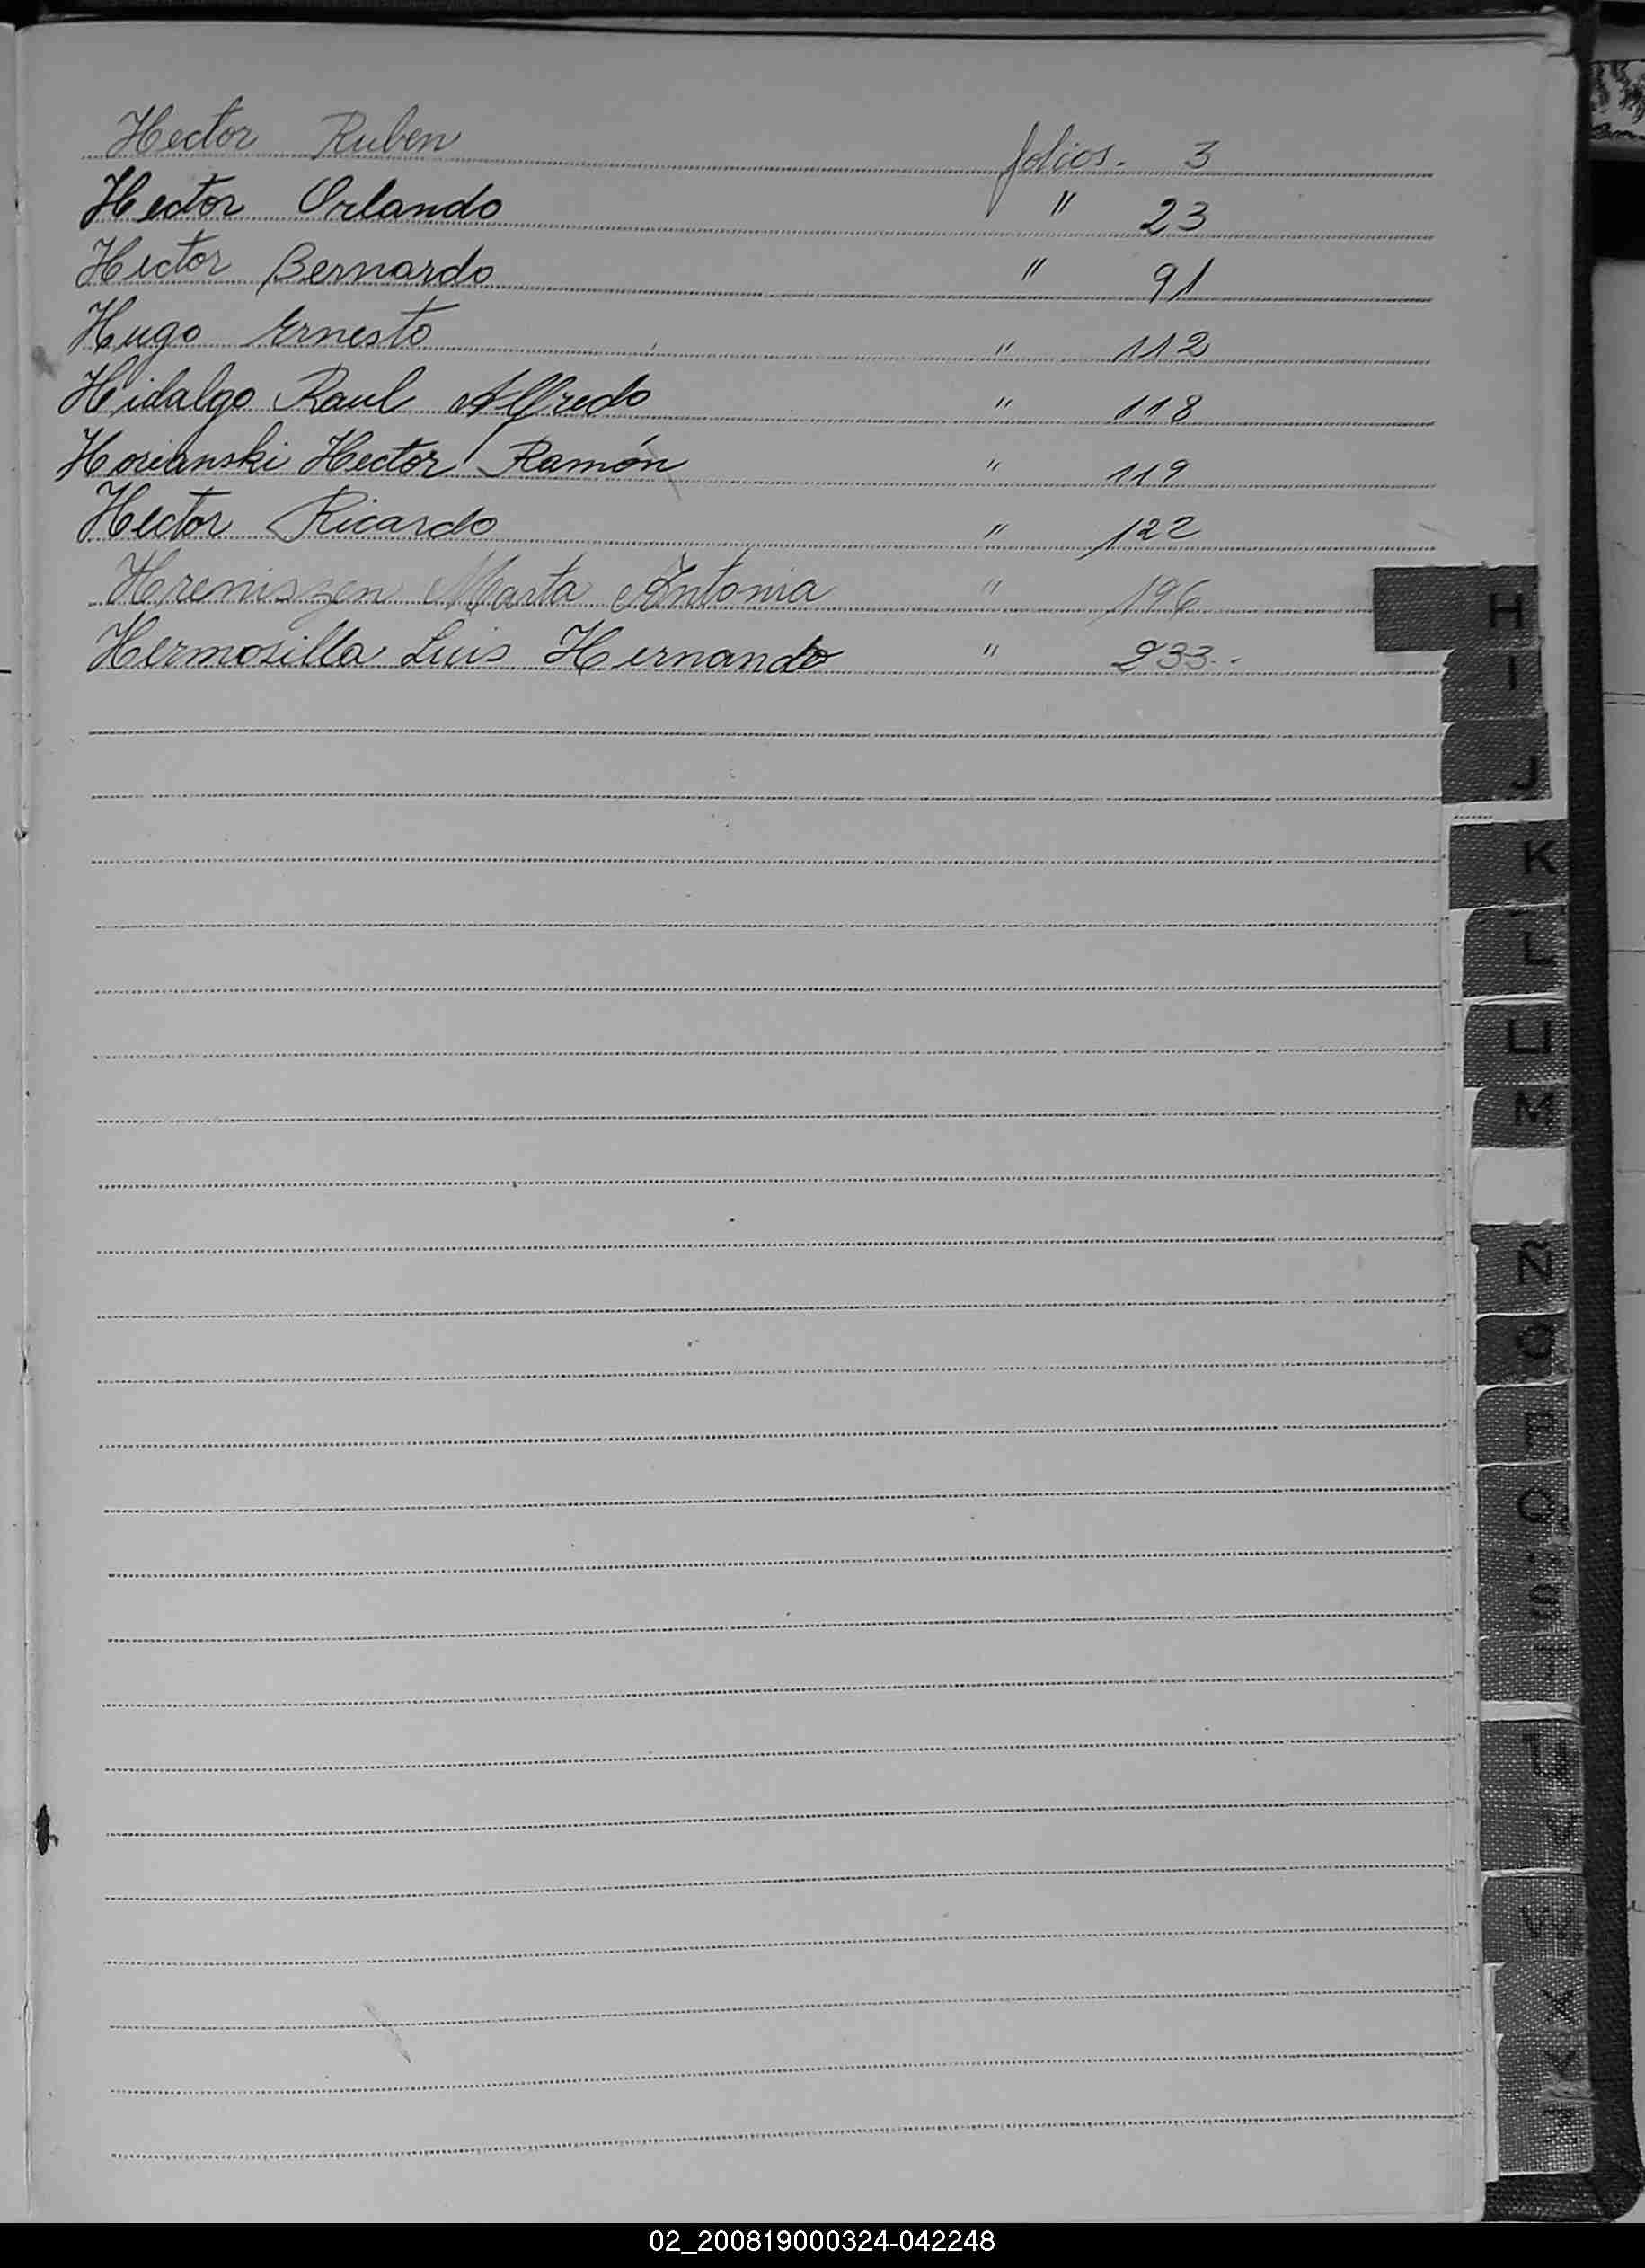 Hector Ruben folios. 3
Hector Orlando " 23
Hector Bernardo " 91
Hugo Ernesto " 112
Hidalgo Raul Alfredo " 118
Horianski Hector Ramón " 119
Hector Ricardo " 122
Hreniszen Marta Antonia " 196
Hermosilla Luis Hernando " 233.
H
I
J
K
L
LL
M
Ñ
O
P
Q
S
T
U
V
W
X
Y
02_200819000324-042248